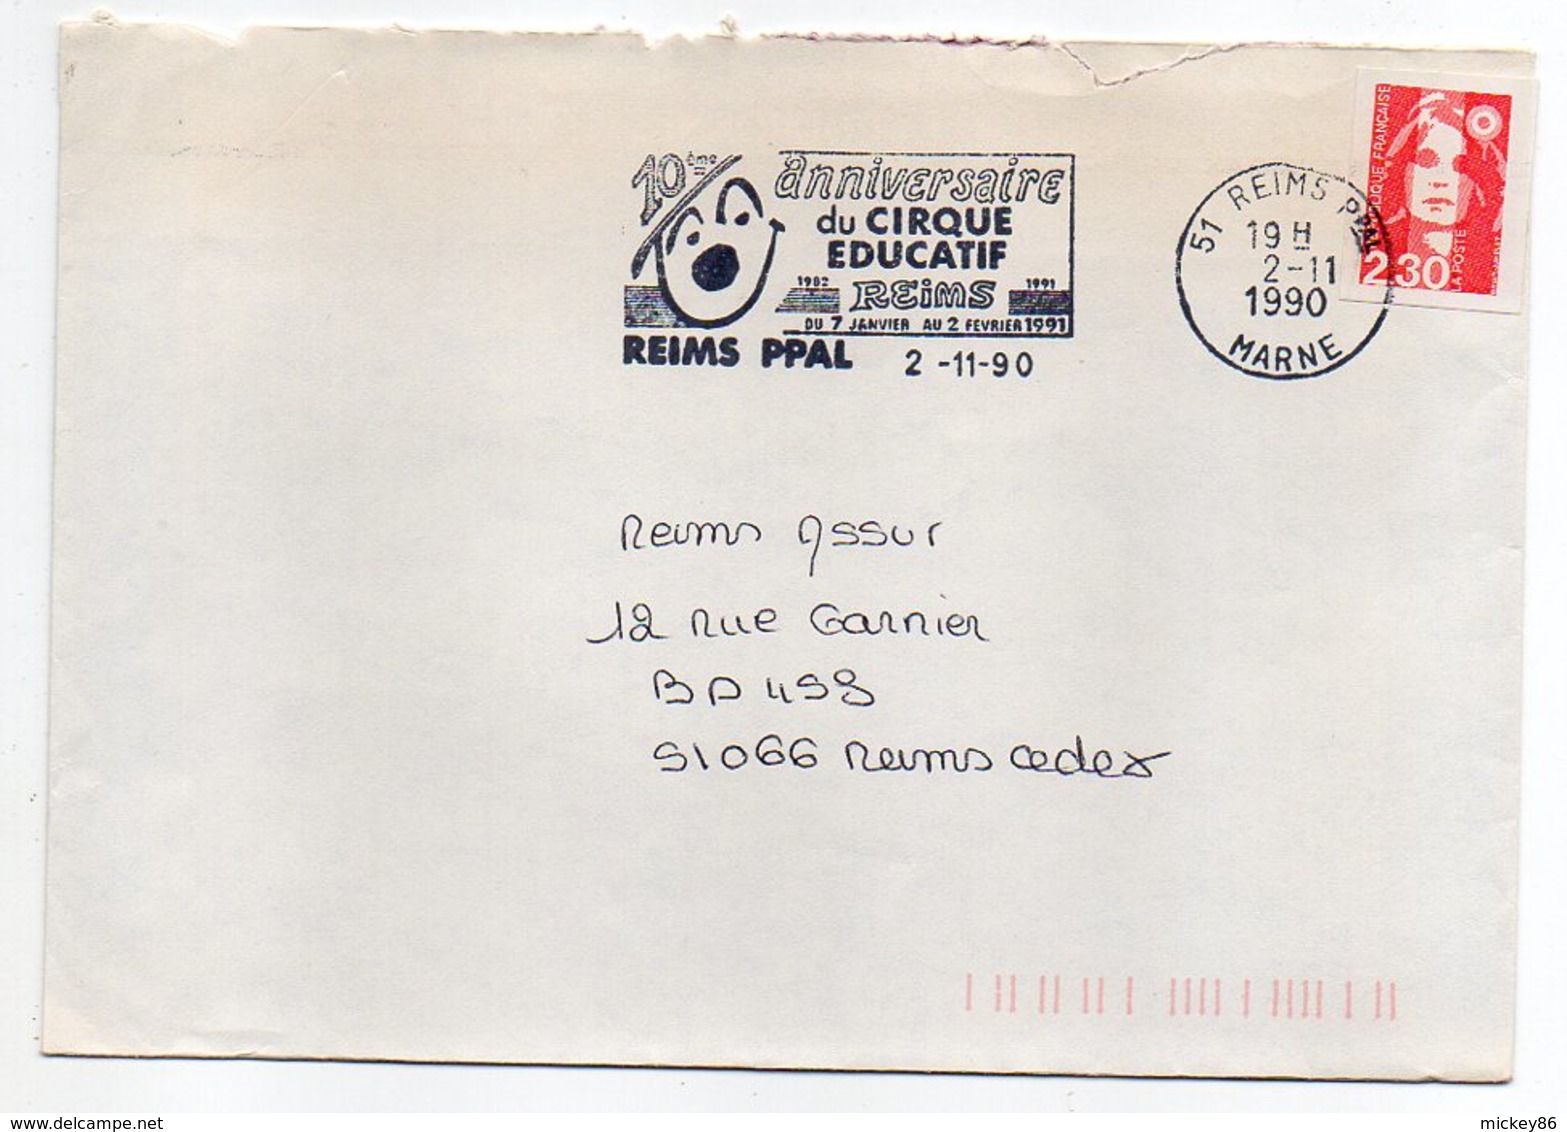 10ème anniversaire
du CIRQUE
EDUCATIF
1982 REiMS 1991
DU 7 JANVIER AU 2 FEVRIER 1991
REIMS PPAL 2 -11-90
51 REIMS PPAL
19 H
2-11
1990
MARNE
RÉPUBLIQUE FRANÇAISE
2,30
LA POSTE
Reims Assur
12 Rue Garnier
BP 459
51066 Reims Cedex
www.delcampe.net
mickey86